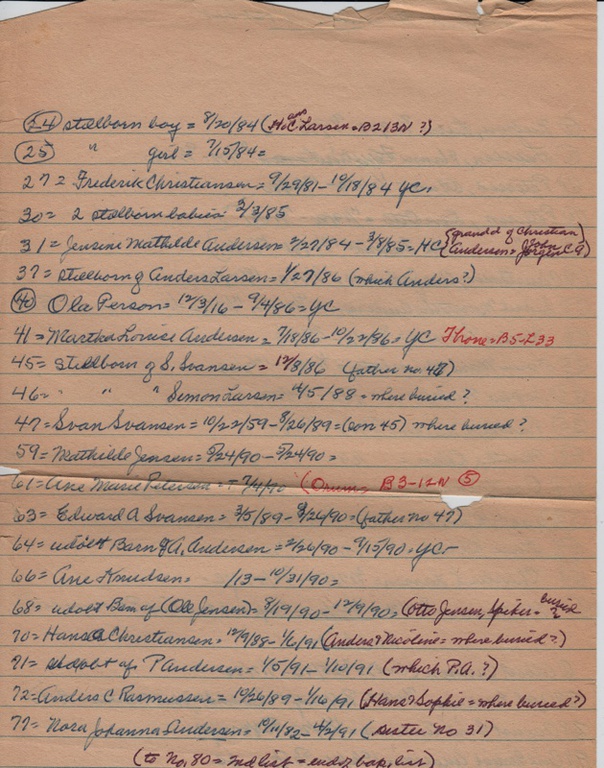 (24) stillborn boy = 8/20/84 (H.C. ans Larsen = B213N ?)
(25) " girl = 7/15/84 =
27 = Frederik Christiansen = 9/29/81 - 10/18/84 YC.
30 = 2 stillborn babies 3/3/85
31 = Jensine Mathilde Andersen = 2/27/84 - 3/8/85 = HC (grandd of Christian
Anderson = John Jörgen C A)
37 = stillborn of Anders Larsen = 1/27/86 (which Anders?)
(40) Ola Person = 12/3/16 - 9/4/86 = YC
41 = Martha Louise Andersen = 7/18/86 - 10/22/86 = YC Throne = B5-L33
45 = stillborn of S. Svansen = 12/8/86 (father no. 47)
46 = " " Simon Larsen = 4/5/88 = where buried?
47 = Svan Svansen = 10/22/59 - 8/26/89 = (son 45) where buried?
59 = Mathilde Jensen = 5/24/90 - 5/24/90 =
61 = Ane Marie Petersen = + 7/4/90 (Orum = B3-12N (5)
63 = Edward A Svansen = 3/5/89 - 8/26/90 = (father no 47)
64 = udöbt Barn of A. Andersen = 2/26/90 - 9/15/90 = YC -
66 = Ane Knudsen = /13 - 10/31/90 =
68 = udobt Barn of (Ole Jensen) = 8/19/90 - 12/9/90 = (Otto Jensen, Spiker = buried ?
70 = Hans Christiansen = 12/9/88 - 1/6/91 (Anders & Nicoline = where buried?)
71 = udobt of P Andersen = 1/5/91 - 1/10/91 (which P.A.?)
72 = Anders C Rasmussen = 10/26/89 - 1/16/91 (Hans & Sophie = where buried?)
77 = Nora Johanna Andersen = 10/11/82 - 4/2/91 (sister no 31)
(to no. 80 = md list = end of bap. list)